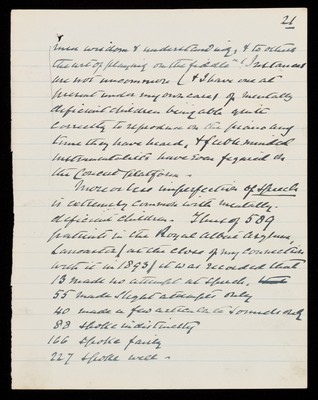 21
men wisdom & understanding, & to others
the art of playing on the fiddle"! Instances
are not uncommon (& I have one at
present under my own care) of mentally
deficient children being able quite
correctly to reproduce on the piano any
tune they have heard, & feeble minded
instrumentalists have even figured on
the Concert platform.
More or less imperfection of speech
is extremely common with mentally-
deficient children. Thus of 589
patients in the Royal Albert Asylum,
Lancaster (at the close of my connection
with it in 1893) it was recorded that
13 made no attempt at speech,
55 made slight attempts only
40 made a few articulate sounds only
88 spoke indistinctly
166 spoke fairly
227 spoke well -